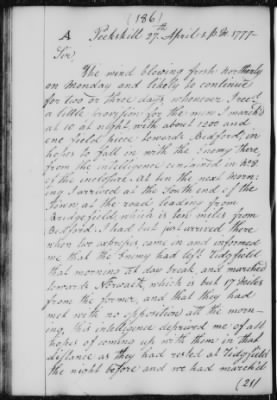 (186)
A Peekskill 27th April 1777
Sir,
The wind blowing fresh northerly
on Monday and likely to continue
for two or three days, whenever I rec'd
a little provision for the men I march'd
at 10 at night with about 1200 and
one field piece towards Bedford, in
hopes to fall in with the Enemy there,
from the intelligence contained in No 8
of the inclosures at ten the next morn-
ing I arrived at the South end of the
Town, at the road leading from
Bridgefield which is ten miles from
Bedford. I had but just arrived there
when two expresses came in and informed
me that the Enemy had left Ridgfield
that morning at day break and marched
towards Norwalk which is but 17 miles
from the former, and that they had
met with no opposition all the morn-
ing, this intelligence deprived me of all
hopes of coming up with them in that
distance as they had rested at Ridgfield
the night before and we had marched
(211)